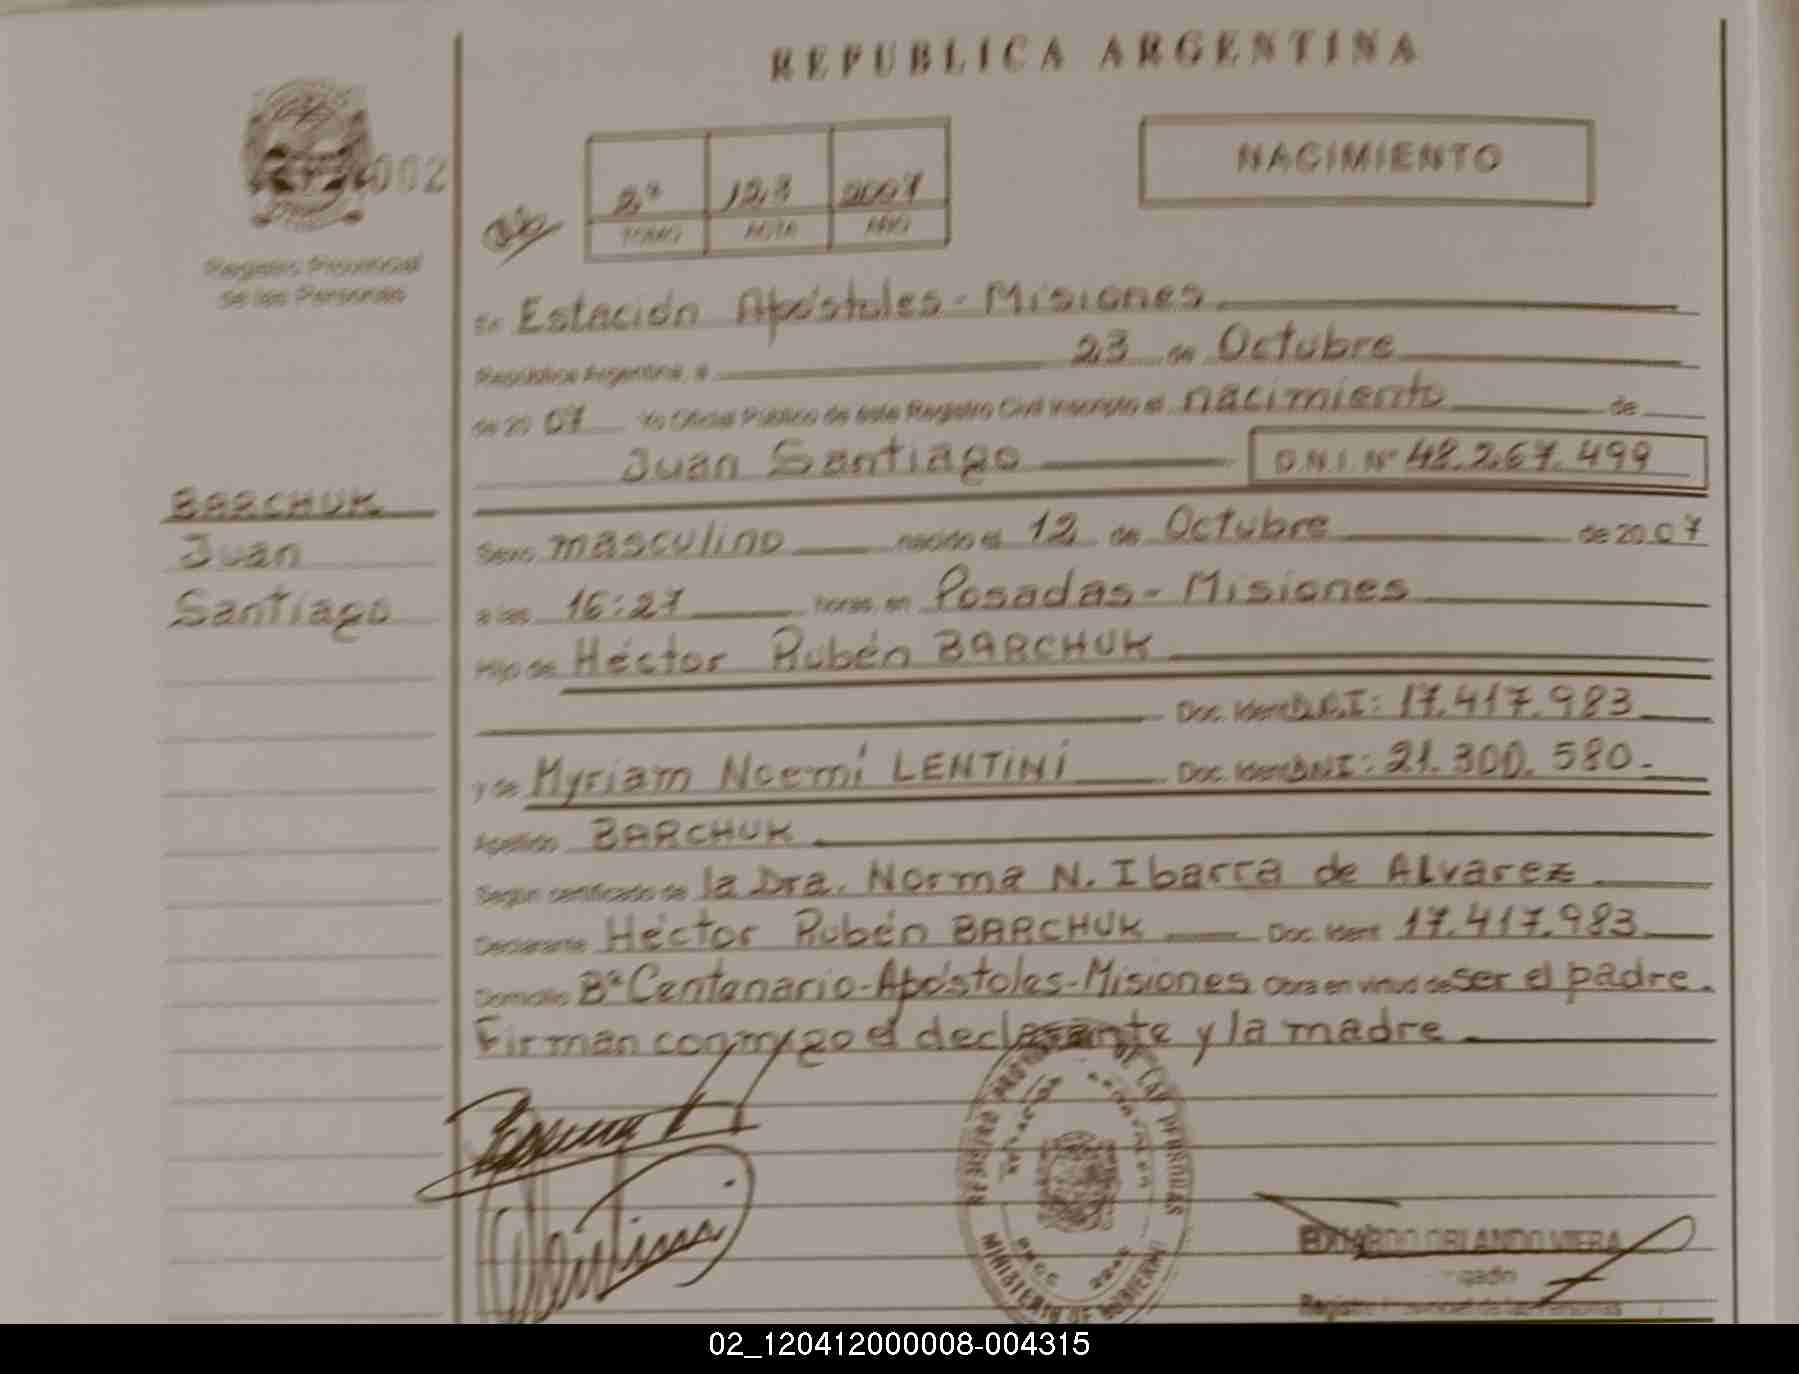 REPUBLICA ARGENTINA
002
NACIMIENTO
2ª 123 2007
TOMO ACTA AÑO
Registro Provincial
de las Personas
En Estación Apóstoles - Misiones
República Argentina, a 23 de Octubre
de 20 07 Yo Oficial Público de este Registro Civil inscripto el nacimiento de
Juan Santiago D.N.I. Nº 48.267.499
BARCHUK
Juan
Santiago
Sexo masculino nacido el 12 de Octubre de 20 07
a las 16:27 horas en Posadas - Misiones
Hijo de Héctor Rubén BARCHUK
Doc. Ident D.N.I: 17.417.983
y de Myriam Noemí LENTINI Doc. Ident DNI: 21.300.580.
Apellido BARCHUK
Según certificado de la Dra. Norma N. Ibarra de Alvarez
Declarante Héctor Rubén BARCHUK Doc. Ident 17.417.983
Domicilio Bº Centenario-Apóstoles-Misiones Obra en virtud de ser el padre.
Firman conmigo el declarante y la madre
DE LAS PERSONAS
MINISTERIO DE GOBIERNO
EDUARDO ORLANDO VIERA
Registro Provincial de las Personas
02_120412000008-004315